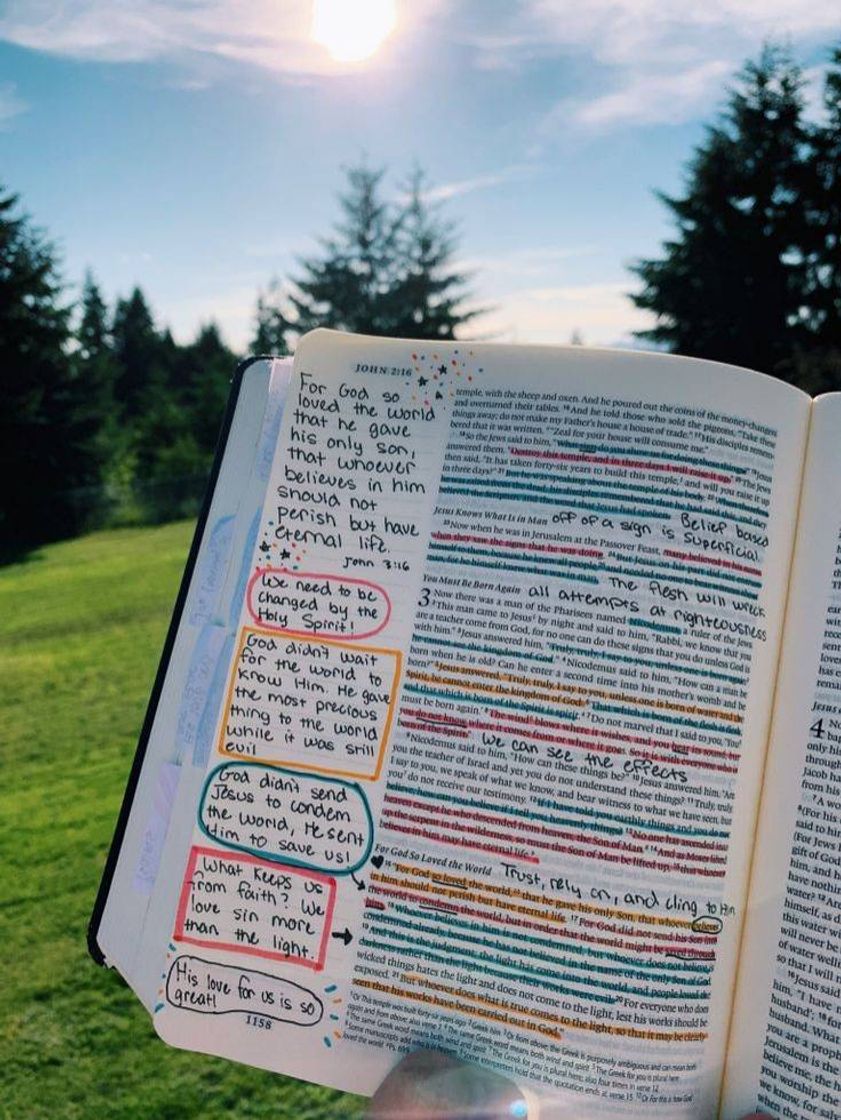 JOHN 2:16
For God so
loved the world
that he gave
his only son,
that whoever
believes in him
should not
perish but have
eternal life.
John 3:16
We need to be
changed by the
Holy Spirit!
God didn't wait
for the world to
know Him. He gave
the most precious
thing to the world
while it was still
evil
God didn't send
Jesus to condem
the world, He sent
Him to save us!
What keeps us
from faith? We
love sin more
than the light.
His love for us is so
great!
1158
temple, with the sheep and oxen. And he poured out the coins of the money-changers
and overturned their tables. 16And he told those who sold the pigeons, "Take these
things away; do not make my Father's house a house of trade." 17His disciples remem-
bered that it was written, "Zeal for your house will consume me."
18So the Jews said to him, "What sign do you show us for doing these things?" 19Jesus
answered them, "Destroy this temple, and in three days I will raise it up." 20The Jews
then said, "It has taken forty-six years to build this temple, and will you raise it up
in three days?" 21But he was speaking about the temple of his body. 22When therefore
he was raised from the dead, his disciples remembered that he had said this, and they
believed the Scripture and the word that Jesus had spoken.
Belief based
Jesus Knows What Is in Man
off of a sign is superficial.
23Now when he was in Jerusalem at the Passover Feast, many believed in his name
when they saw the signs that he was doing. 24But Jesus on his part did not entrust
himself to them, because he knew all people 25and needed no one to bear witness about
man, for he himself knew what was in man.
The flesh will wreck
You Must Be Born Again
all attempts at righteousness
3 Now there was a man of the Pharisees named Nicodemus, a ruler of the Jews.
2This man came to Jesus by night and said to him, "Rabbi, we know that you
are a teacher come from God, for no one can do these signs that you do unless God is
with him." 3Jesus answered him, "Truly, truly, I say to you, unless one is born again
he cannot see the kingdom of God." 4Nicodemus said to him, "How can a man be
born when he is old? Can he enter a second time into his mother's womb and be
born?" 5Jesus answered, "Truly, truly, I say to you, unless one is born of water and the
Spirit, he cannot enter the kingdom of God. 6That which is born of the flesh is flesh,
and that which is born of the Spirit is spirit. 7Do not marvel that I said to you, 'You
must be born again.' 8The wind blows where it wishes, and you hear its sound, but
you do not know where it comes from or where it goes. So it is with everyone who is
born of the Spirit."
We can see the effects
9Nicodemus said to him, "How can these things be?" 10Jesus answered him, "Are
you the teacher of Israel and yet you do not understand these things? 11Truly, truly,
I say to you, we speak of what we know, and bear witness to what we have seen, but
you do not receive our testimony. 12If I have told you earthly things and you do not
believe, how can you believe if I tell you heavenly things? 13No one has ascended into
heaven except he who descended from heaven, the Son of Man. 14And as Moses lifted
up the serpent in the wilderness, so must the Son of Man be lifted up, 15that whoever
believes in him may have eternal life.
For God So Loved the World
Trust, rely on, and cling to Him
16"For God so loved the world, that he gave his only Son, that whoever believes
in him should not perish but have eternal life. 17For God did not send his Son into
the world to condemn the world, but in order that the world might be saved through
him. 18Whoever believes in him is not condemned, but whoever does not believe is
condemned already, because he has not believed in the name of the only Son of God.
19And this is the judgment: the light has come into the world, and people loved the
darkness rather than the light because their works were evil. 20For everyone who does
wicked things hates the light and does not come to the light, lest his works should be
exposed. 21But whoever does what is true comes to the light, so that it may be clearly
seen that his works have been carried out in God."